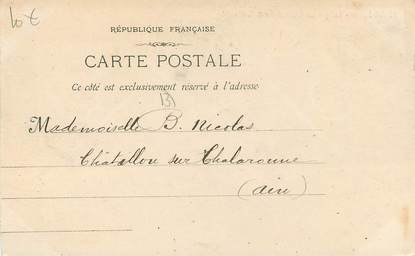 10 €
RÉPUBLIQUE FRANÇAISE
CARTE POSTALE
Ce côté est exclusivement réservé à l'adresse
Mademoiselle B. Nicolas
Châtillon sur Chalaronne
(Ain)